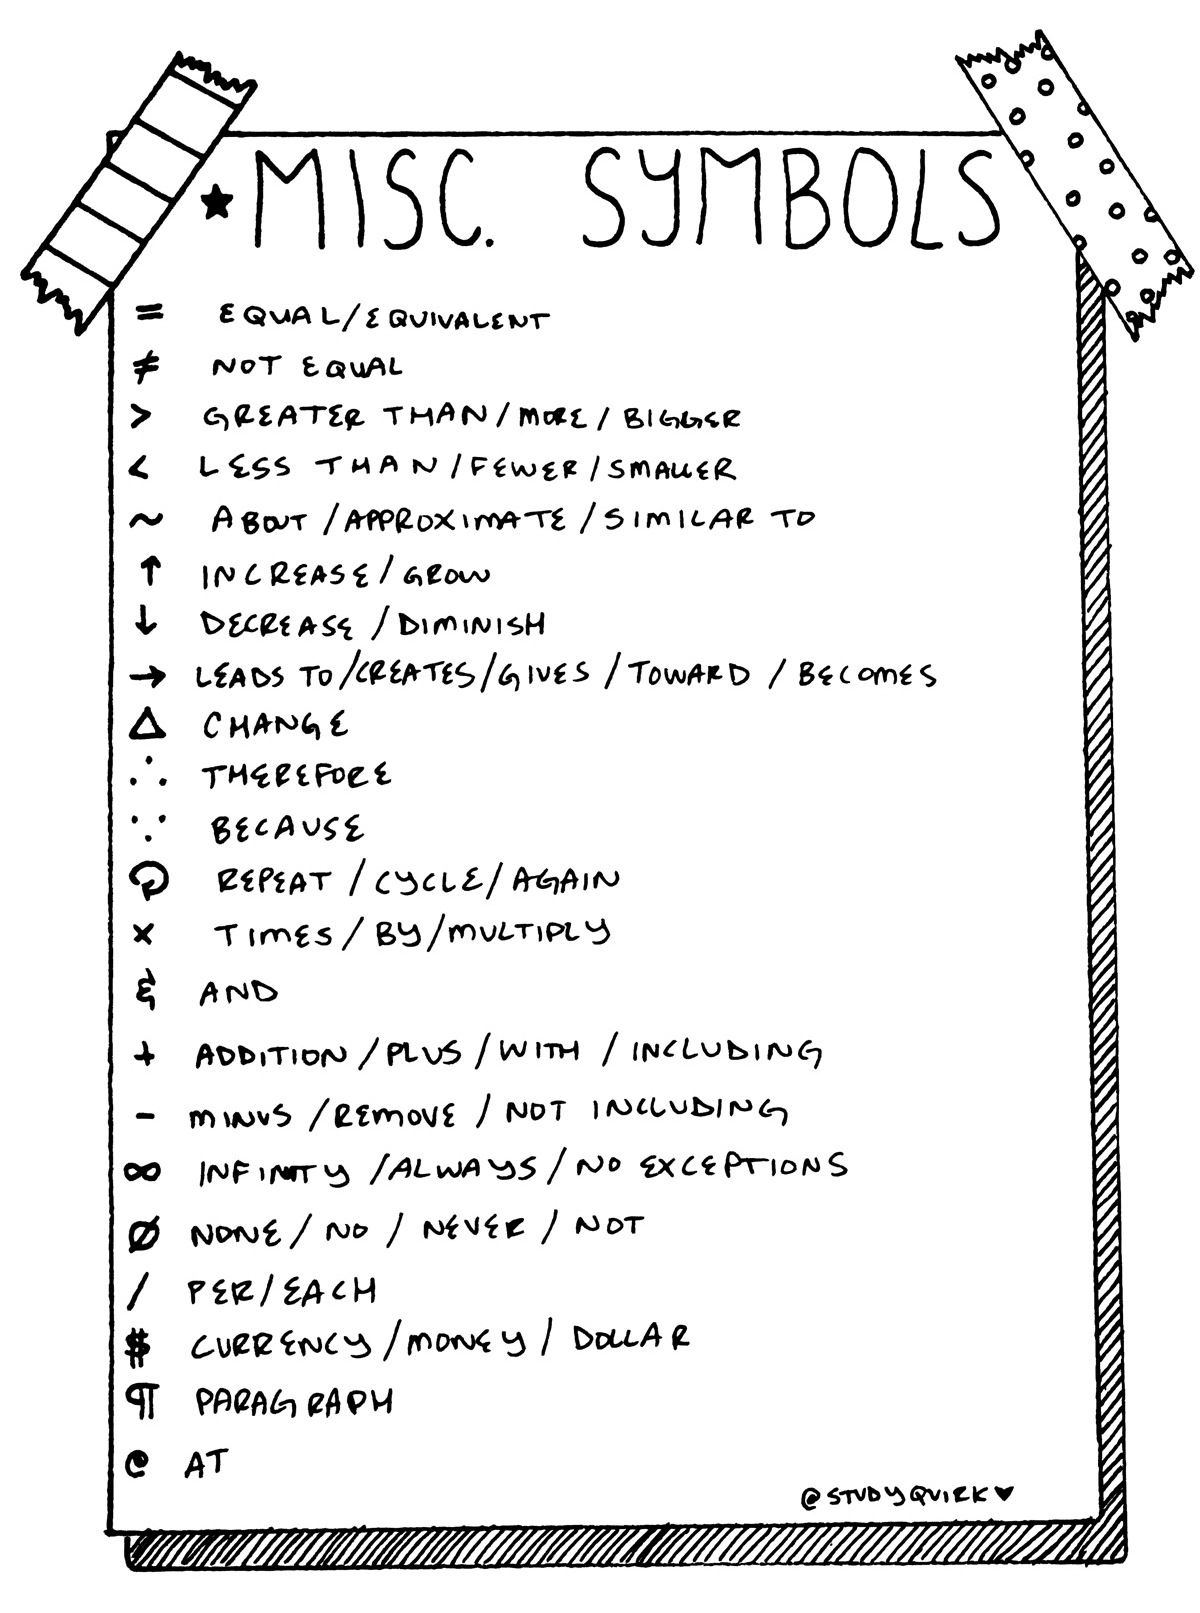 ★MISC. SYMBOLS
= EQUAL/EQUIVALENT
≠ NOT EQUAL
> GREATER THAN/MORE/BIGGER
< LESS THAN/FEWER/SMALLER
~ ABOUT/APPROXIMATE/SIMILAR TO
↑ INCREASE/GROW
↓ DECREASE/DIMINISH
→ LEADS TO/CREATES/GIVES/TOWARD/BECOMES
△ CHANGE
∴ THEREFORE
∵ BECAUSE
⟳ REPEAT/CYCLE/AGAIN
× TIMES/BY/MULTIPLY
& AND
+ ADDITION/PLUS/WITH/INCLUDING
- MINUS/REMOVE/NOT INCLUDING
∞ INFINITY/ALWAYS/NO EXCEPTIONS
Ø NONE/NO/NEVER/NOT
/ PER/EACH
$ CURRENCY/MONEY/DOLLAR
¶ PARAGRAPH
@ AT
@STUDYQUIRK♥